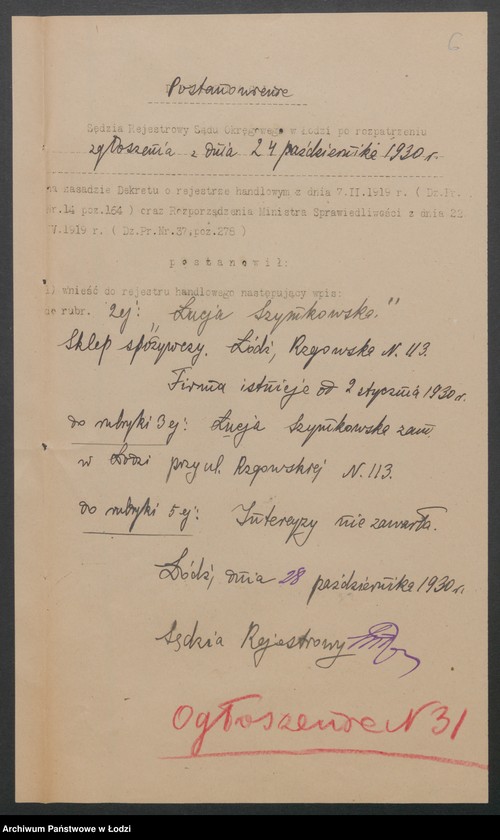 6
Postanowienie
Sędzia Rejestrowy Sądu Okręgowego w Łodzi po rozpatrzeniu
zgłoszenia z dnia 24 października 1930 r.
na zasadzie Dekretu o rejestrze handlowym z dnia 7.II.1919 r. ( Dz.Pr.
Nr.14 poz.164 ) oraz Rozporządzenia Ministra Sprawiedliwości z dnia 22
IV.1919 r. ( Dz.Pr.Nr.37,poz.278 )
postanowił:
1) wnieść do rejestru handlowego następujący wpis:
do rubr. 2ej: „Łucja Szymkowska."
Sklep spożywczy. Łódź, Rzgowska N. 113.
Firma istnieje od 2 stycznia 1930 r.
do rubryki 3 ej: Łucja Szymkowska zam.
w Łodzi przy ul. Rzgowskiej N. 113.
do rubryki 5 ej: Intercyzy nie zawarła.
Łódź, dnia 28 października 1930 r.
Sędzia Rejestrowy
Ogłoszenie N 31
Archiwum Państwowe w Łodzi